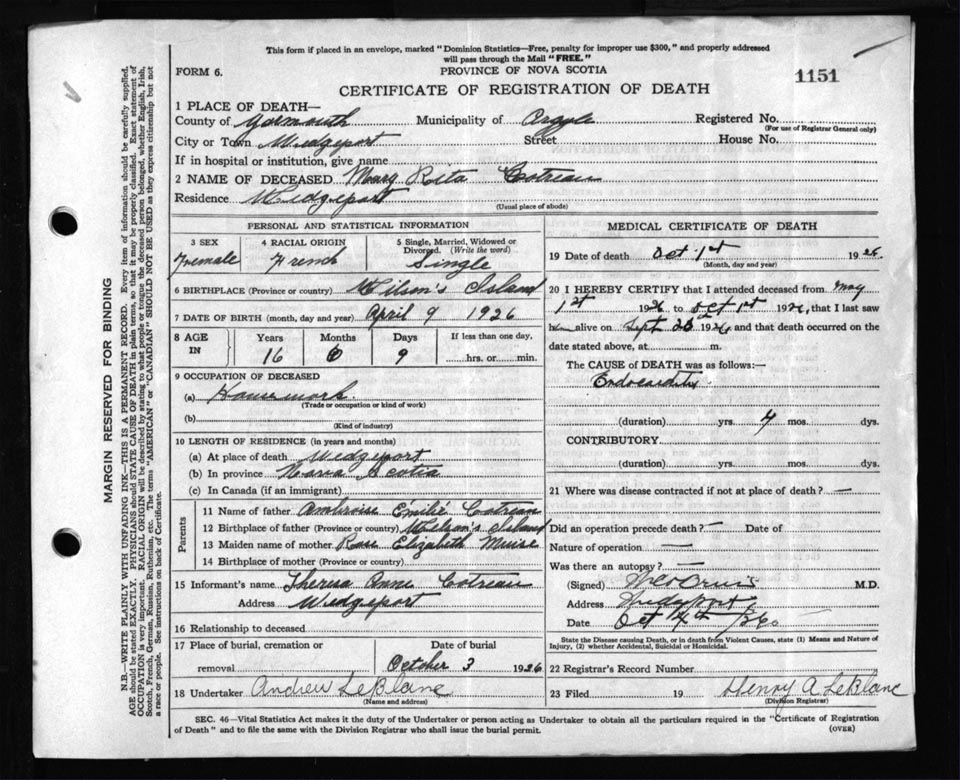 This form if placed in an envelope, marked "Dominion Statistics—Free, penalty for improper use $300," and properly addressed
will pass through the Mail "FREE."
FORM 6.
PROVINCE OF NOVA SCOTIA
1151
CERTIFICATE OF REGISTRATION OF DEATH
1 PLACE OF DEATH—
County of Yarmouth Municipality of Argyle Registered No.
(For use of Registrar General only)
City or Town Wedgeport Street House No.
If in hospital or institution, give name
2 NAME OF DECEASED Mary Rita Cotreau
Residence Wedgeport
(Usual place of abode)
PERSONAL AND STATISTICAL INFORMATION
3 SEX
Female
4 RACIAL ORIGIN
French
5 Single, Married, Widowed or
Divorced. (Write the word)
Single
6 BIRTHPLACE (Province or country) Wilson's Island
7 DATE OF BIRTH (month, day and year) April 9 1926
8 AGE
IN
Years
16
Months
6
Days
9
If less than one day,
hrs. or min.
9 OCCUPATION OF DECEASED
(a) Housework
(Trade or occupation or kind of work)
(b)
(Kind of industry)
10 LENGTH OF RESIDENCE (in years and months)
(a) At place of death Wedgeport
(b) In province Nova Scotia
(c) In Canada (if an immigrant)
Parents
11 Name of father Ambroise Émilé Cotreau
12 Birthplace of father (Province or country) Wilson's Island
13 Maiden name of mother Rose Elizabeth Muise
14 Birthplace of mother (Province or country)
15 Informant's name Theresa Anne Cotreau
Address Wedgeport
16 Relationship to deceased
17 Place of burial, cremation or
removal
Date of burial
October 3 1926
18 Undertaker Andrew LeBlanc
(Name and address)
MEDICAL CERTIFICATE OF DEATH
19 Date of death Oct 1st 1926
(Month, day and year)
20 I HEREBY CERTIFY that I attended deceased from May
1st 1926 to Oct 1st 1926, that I last saw
alive on Sept 1926, and that death occurred on the
date stated above, at m.
The CAUSE OF DEATH was as follows:—
Endocarditis
(duration) yrs. 4 mos. dys.
CONTRIBUTORY
(duration) yrs. mos. dys.
21 Where was disease contracted if not at place of death? —
Did an operation precede death? — Date of
Nature of operation —
Was there an autopsy? —
(Signed) M.D.
Address Wedgeport
Date Oct 4th /26
State the Disease causing Death, or in death from Violent Causes, state (1) Means and Nature of
Injury, (2) whether Accidental, Suicidal or Homicidal.
22 Registrar's Record Number
23 Filed 19 Henry A LeBlanc
(Division Registrar)
SEC. 46—Vital Statistics Act makes it the duty of the Undertaker or person acting as Undertaker to obtain all the particulars required in the "Certificate of Registration
of Death" and to file the same with the Division Registrar who shall issue the burial permit.
(OVER)
MARGIN RESERVED FOR BINDING
N.B.—WRITE PLAINLY, WITH UNFADING INK—THIS IS A PERMANENT RECORD. Every item of information should be carefully supplied.
AGE should be stated EXACTLY. PHYSICIANS should STATE CAUSE OF DEATH in plain terms, so that it may be properly classified. Exact statement of
OCCUPATION is very important. RACIAL ORIGIN will be described by stating to what people or tongue the deceased person belonged, whether English, Irish,
Scotch, French, German, Russian, Ruthenian, etc. The terms "AMERICAN" or "CANADIAN" SHOULD NOT BE USED as they express citizenship but not
a race or people. See instructions on back of Certificate.